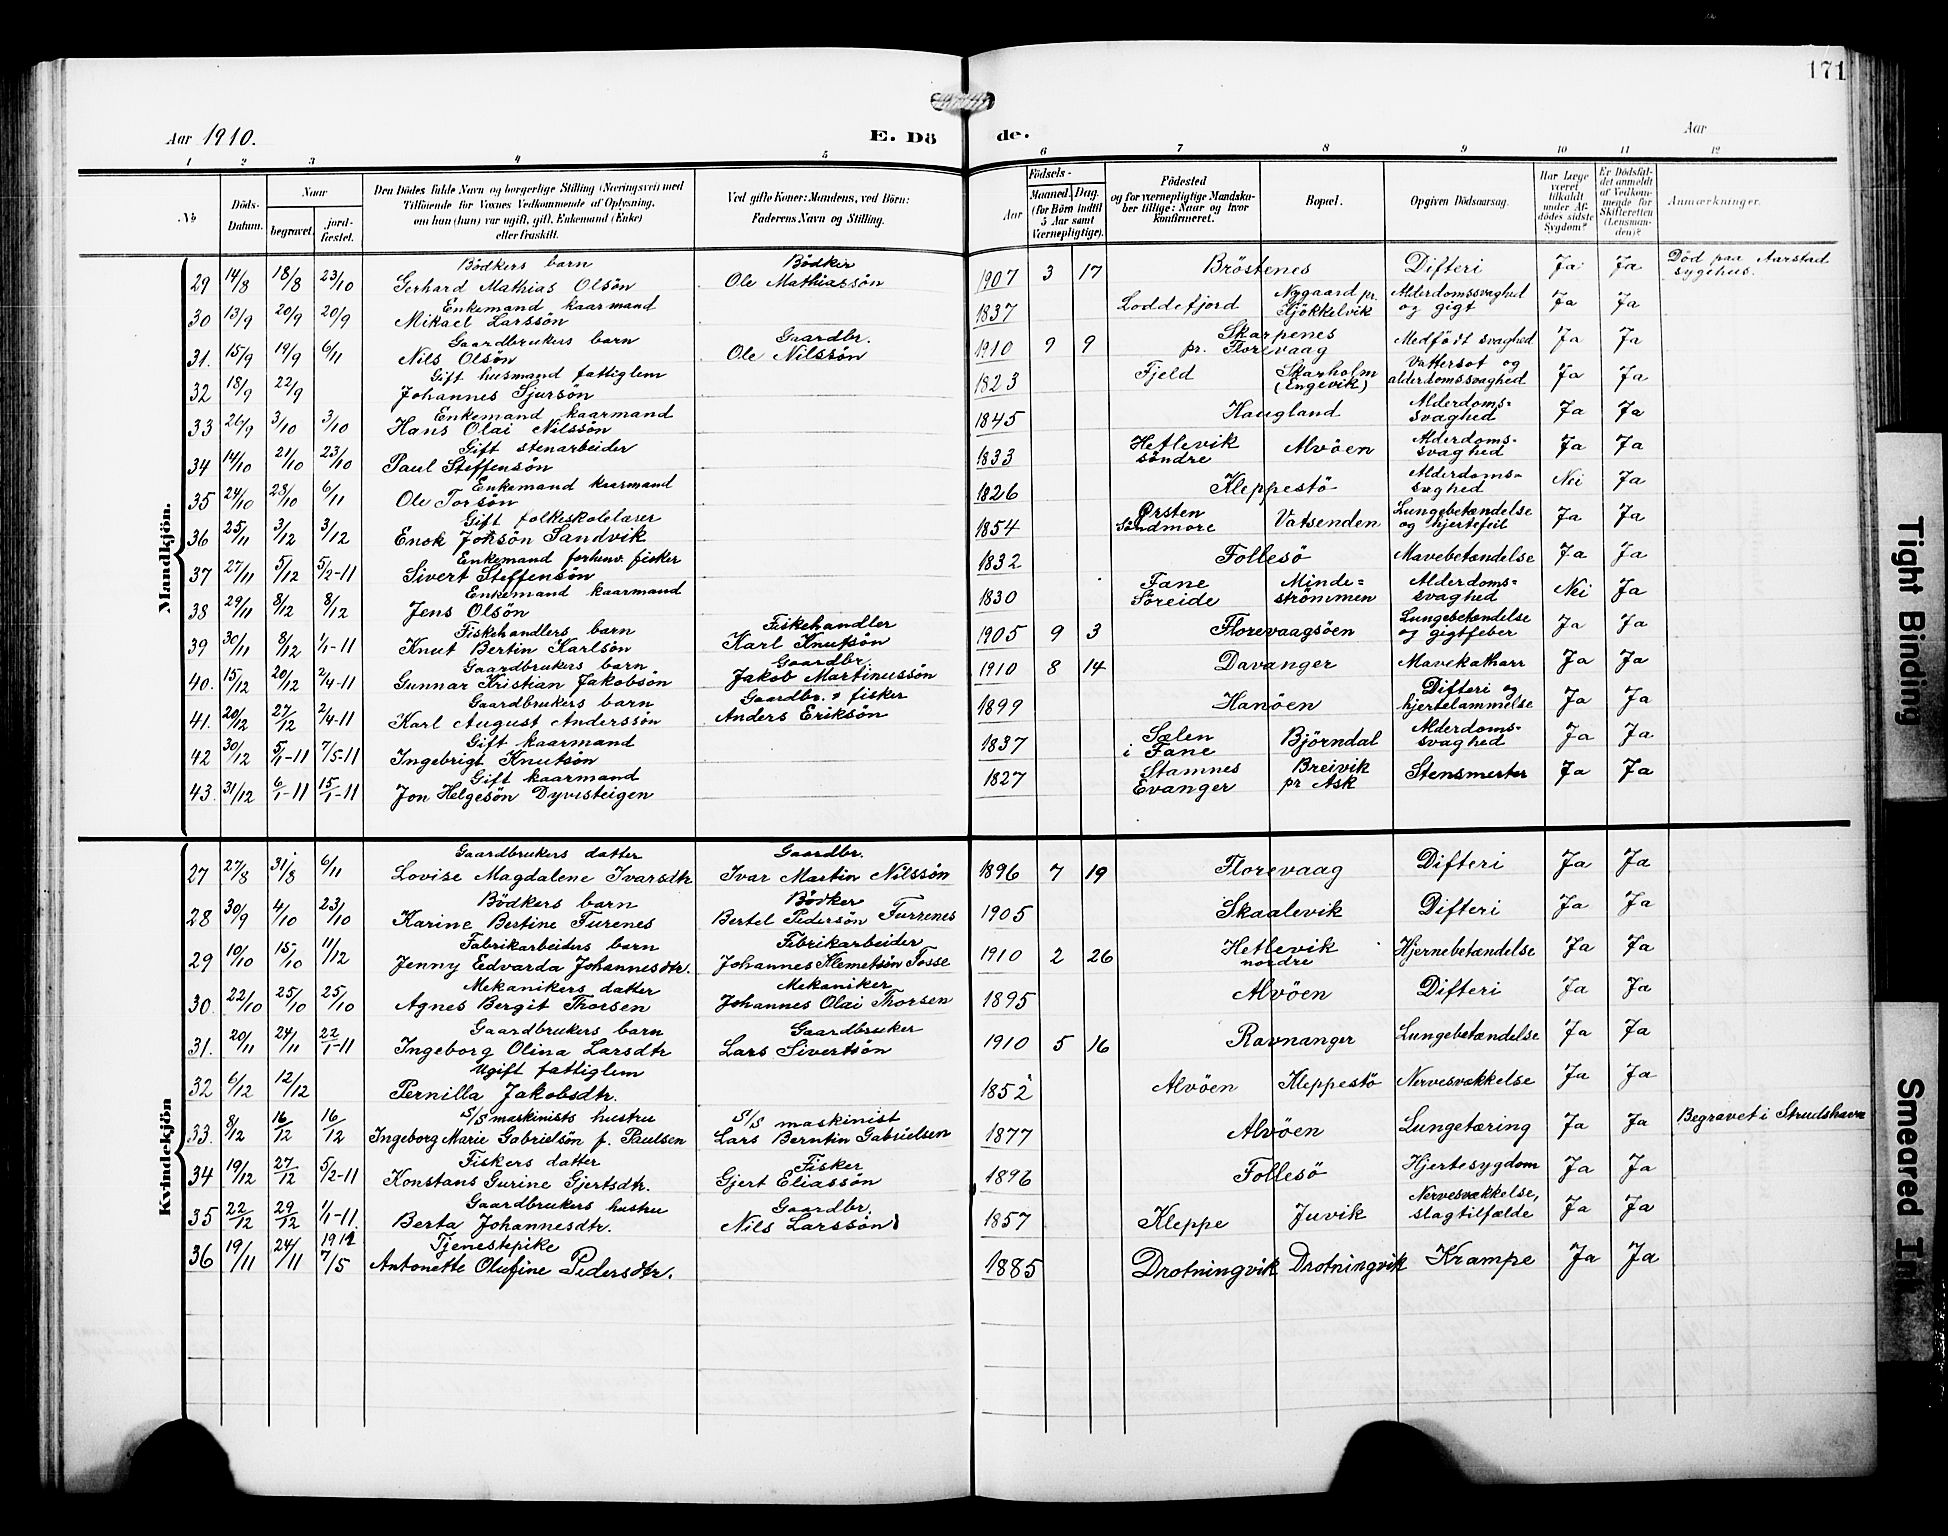 171
Aar 1910.
E. Dö de.
Aar
1 2 3 4 5 6 7 8 9 10 11 12
No
Döds-Datum.
Naar
begravet.
jord-fæstet.
Den Dödes fulde Navn og borgerlige Stilling (Næringsvei) med
Tilföiende for Voxnes Vedkommende af Oplysning,
om hun (hun) var ugift, gift, Enkemand (Enke)
eller fraskilt.
Ved gifte Koner: Mandens, ved Börn:
Faderens Navn og Stilling.
Födsels-
Aar
Maaned. Dag.
(for Börn indtil
5 Aar samt
Værnepligtige).
Födested
og for værnepligtige Mandska-
ber tillige: Naar og hvor
konfirmeret.
Bopæl.
Opgiven Dödsaarsag.
Har Læge
været
tilkaldt
under Af-
dödes sidste
Sygdom?
Er Dödsfal-
det anmeldt
af Vedkom-
mende for
Skifteretten
(Lensman-
den)?
Anmærkninger.
Mandkjön.
29 14/8 18/8 23/10 Bödkers barn Gerhard Mathias Olsön Bödker Ole Mathiassön 1907 3 17 Bröstenes Difteri Ja Ja Död paa Aarstad sygehus.
30 13/9 20/9 20/9 Enkemand kaarmand Mikael Larssön 1837 Loddefjord Nygaard pr. Hjökkelvik Alderdomssvaghed og gigt Ja Ja
31. 15/9 19/9 6/11 Gaardbrukers barn Nils Olsön Gaardbr. Ole Nilssön 1910 9 9 Skarpenes pr. Florevaag Medfödt svaghed Ja Ja
32 18/9 22/9 Gift husmand fattiglem Johannes Sjursön 1823 Fjeld Skarholm (Engevik) Vattersot og alderdomssvaghed Ja Ja
33 26/9 3/10 3/10 Enkemand kaarmand Hans Olai Nilssön 1845 Haugland Alderdoms= svaghed Ja Ja
34 14/10 21/10 23/10 Gift stenarbeider Paul Steffensön 1833 Hetlevik söndre Alvöen Alderdoms- svaghed Ja Ja
35 24/10 28/10 6/11 Enkemand kaarmand Ole Torsön 1826 Kleppestö Alderdoms= svaghed Nei Ja
36 25/11 3/12 3/12 Gift folkeskolelærer Enok Johsön Sandvik 1854 Örsten Söndmöre Vatsenden Lungebetændelse og hjertefeil Ja Ja
37 27/11 5/12 5/2-11 Enkemand forhenv. fisker Sivert Steffensön 1832 Follesö Mavebetændelse Ja Ja
38 29/11 8/12 8/12 Enkemand kaarmand Jens Olsön 1830 Fane Söreide Minde= strömmen Alderdoms= svaghed Nei Ja
39 30/11 8/12 1/1-11 Fiskehandlers barn Knut Bertin Karlsön Fiskehandler Karl Knutsön 1905 9 3 Florevaagsöen Lungebetændelse og gigtfeber Ja Ja
40. 15/12 20/12 2/4-11 Gaardbrukers barn Gunnar Kristian Jakobsön Gaardbr. Jakob Martinussön 1910 8 14 Davanger Mavekatharr Ja Ja
41. 20/12 27/12 2/4-11 Gaardbrukers barn Karl August Anderssön Gaardbr. & fisker Anders Eriksön 1899 Hanöen Difteri og hjertelammelse Ja Ja
42 30/12 5/1-11 7/5-11 Gift kaarmand Ingebrigt Knutsön 1837 Sælen i Fane Björndal Alderdoms= svaghed Ja Ja
43. 31/12 6/1-11 15/1-11 Gift kaarmand Jon Helgesön Dyvesteigen 1827 Stamnes Evanger Breivik pr Ask Stensmerter Ja Ja
Kvindekjön
27 27/8 31/8 6/11 Gaardbrukers datter Lovise Magdalene Ivarsdtr Gaardbr. Ivar Martin Nilssön 1896 7 19 Florevaag Difteri Ja Ja
28 30/9 4/10 23/10 Bödkers barn Karine Bertine Turenes Bödker Bertel Pedersön Turrenes 1905 Skaalevik Difteri Ja Ja
29 10/10 15/10 11/12 Fabrikarbeiders barn Jenny Edvarda Johannesdtr. Febrikarbeider Johannes Klemetsön Tosse 1910 2 26 Hetlevik nordre Hjernebetændelse Ja Ja
30. 22/10 25/10 25/10 Mekanikers datter Agnes Bergit Thorsen Mekaniker Johannes Olai Thorsen 1895 Alvöen Difteri Ja Ja
31. 20/11 24/11 22/1-11 Gaardbrukers barn Ingeborg Olina Larsdtr Gaardbruker Lars Sivertsön 1910 5 16 Ravnanger Lungebetændelse Ja Ja
32 6/12 12/12 Ugift fattiglem Pernilla Jakobsdtr. 1852 Alvöen Kleppestö Nervesvækkelse Ja Ja
33. 8/12 16/12 16/12 S/S maskinists hustru Ingeborg Marie Gabrielsön f. Paulsen S/S maskinist Lars Berntin Gabrielsen 1877 Alvöen Lungetæring Ja Ja Begravet i Strudshavn
34 19/12 27/12 5/2-11 Fiskers datter Konstans Gurine Gjertsdtr. Fisker Gjert Eliassön 1896 Follesö Hjertesygdom Ja Ja
35 22/12 29/12 1/1-11. Gaardbrukers hustru Berta Johannesdtr. Gaardbr. Nils Larssön 1857 Kleppe Juvik Nervesvækkelse, slagtilfælde Ja Ja
36 19/11 24/11 1911 7/5 Tjenestepike Antonette Olufine Pedersdtr. 1885 Drotningvik Drotningvik Krampe Ja Ja
Tight Binding
Smeared Ink